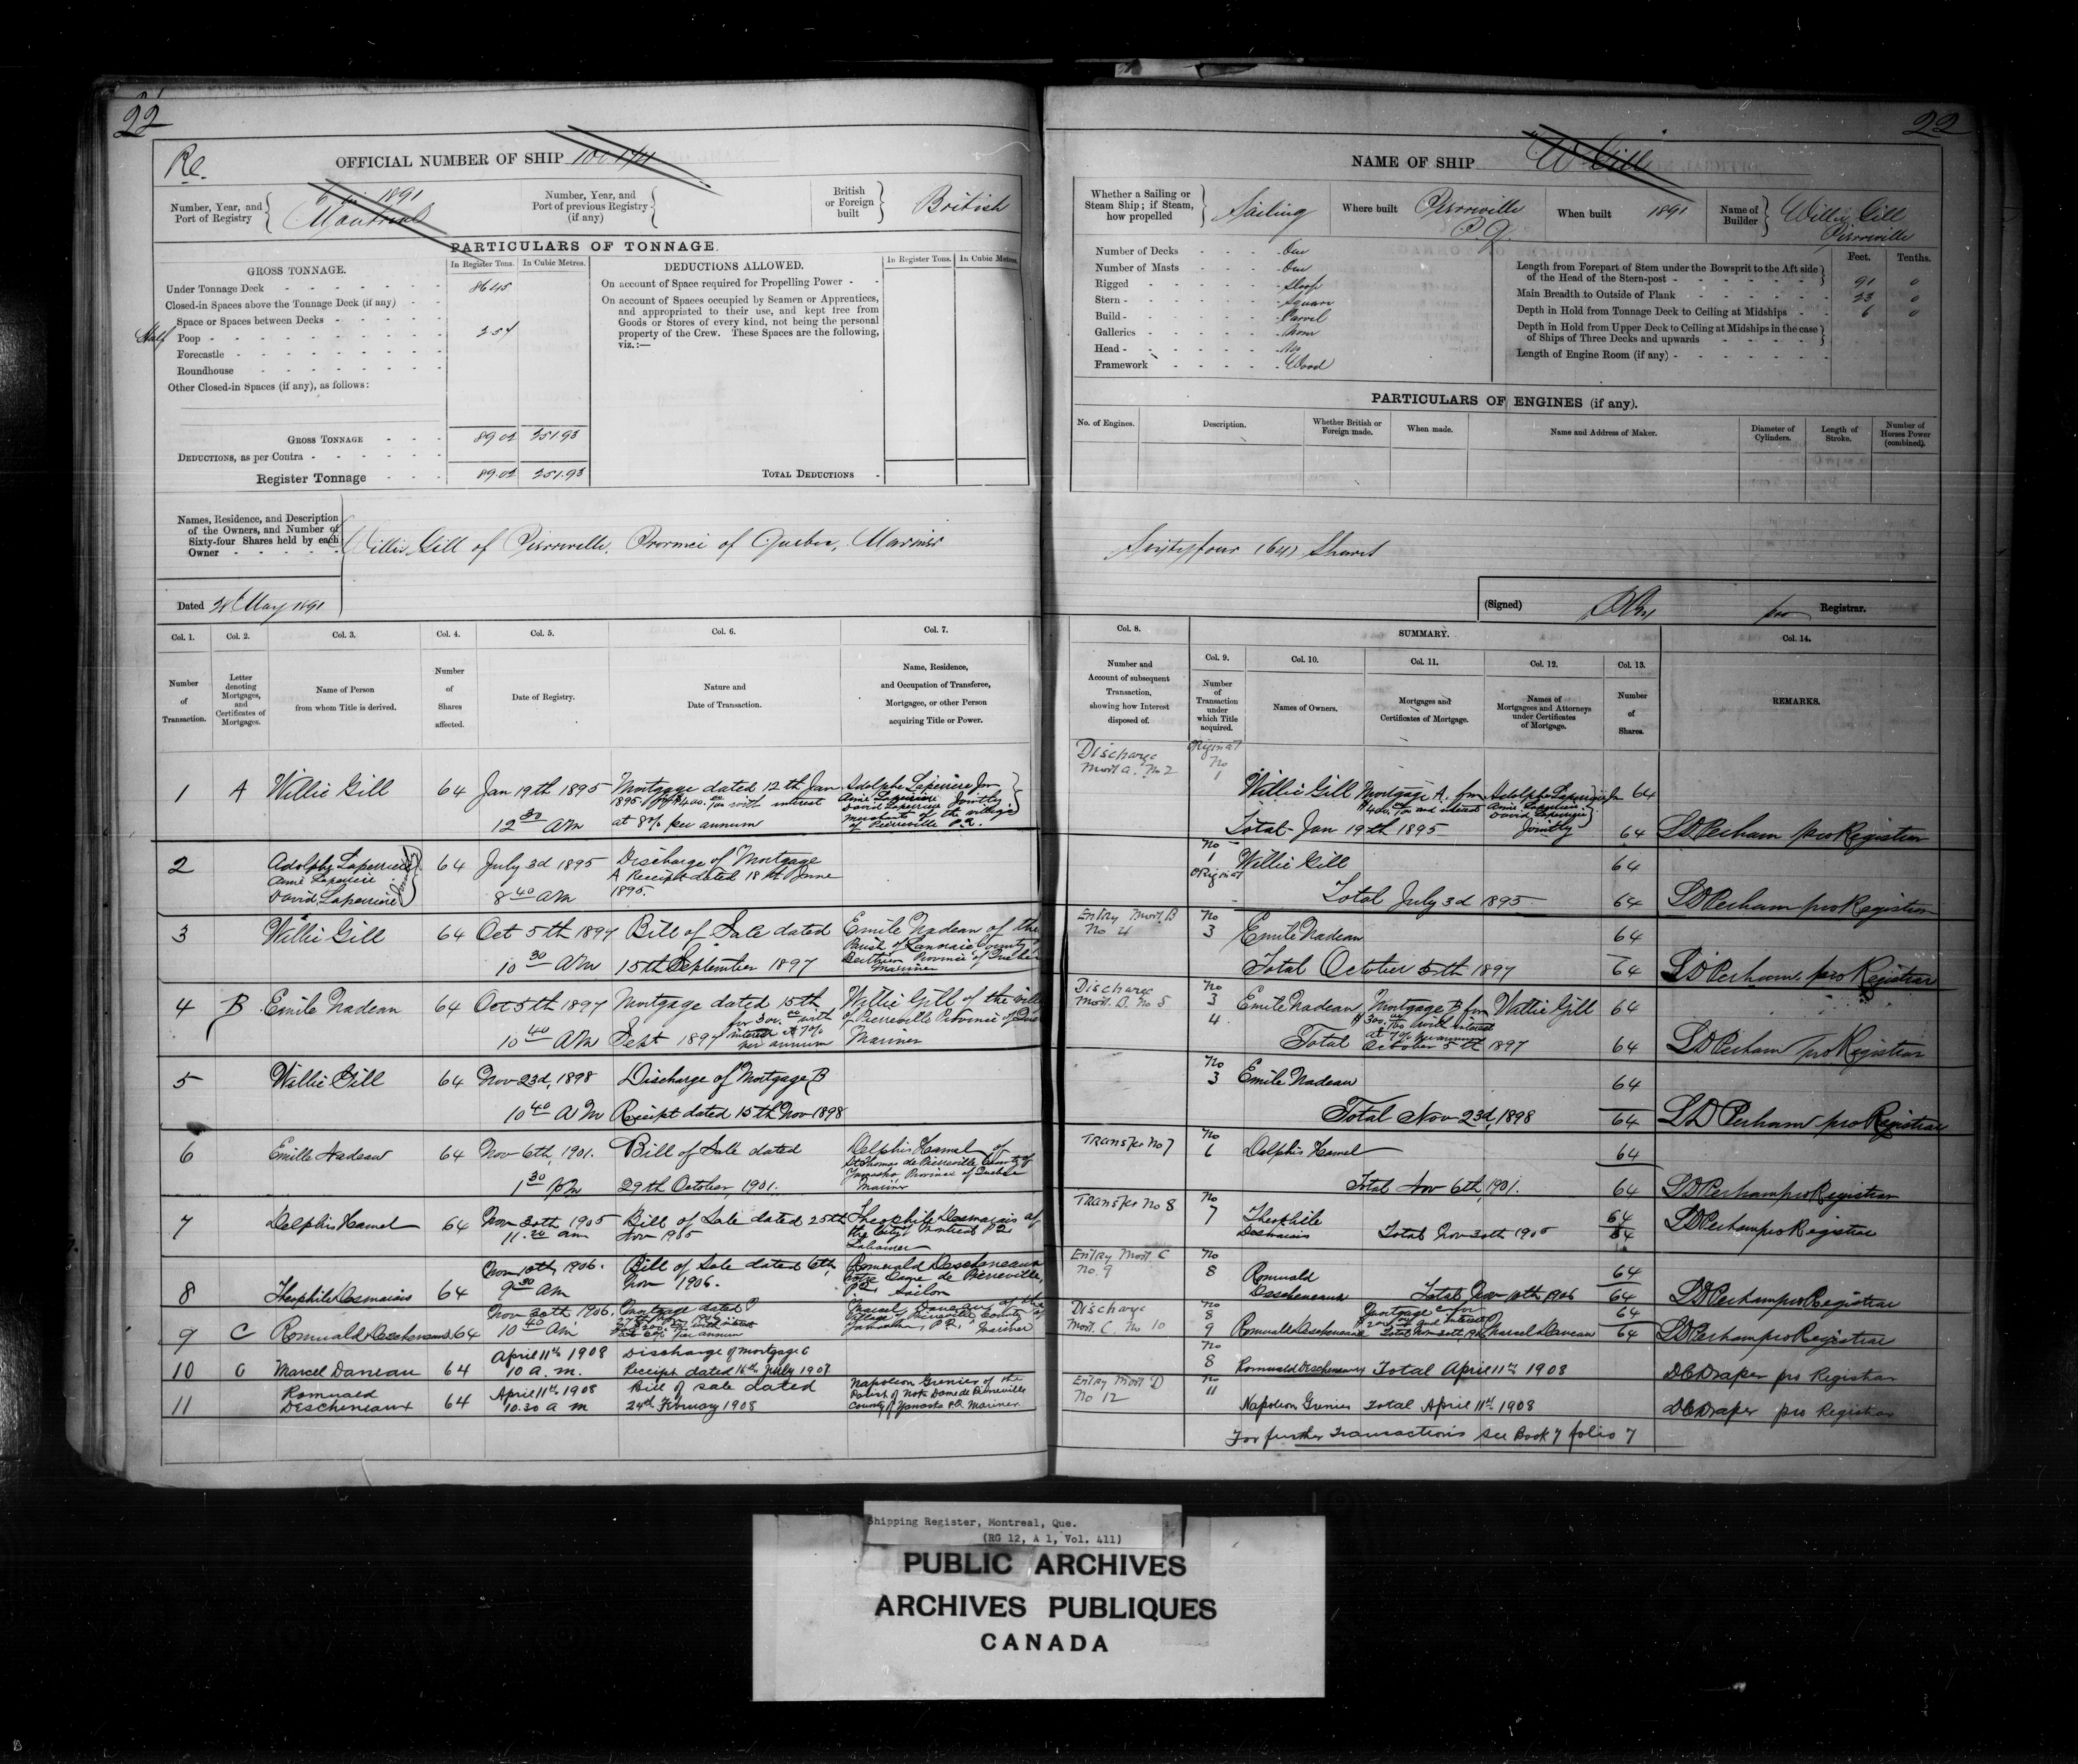 22
22
Re.
OFFICIAL NUMBER OF SHIP
NAME OF SHIP W Gill
Number, Year, and Port of Registry
1891
Montreal
Number, Year, and Port of previous Registry (if any)
British or Foreign built
British
Whether a Sailing or Steam Ship; if Steam, how propelled
Sailing
Where built
Pierreville P.Q.
When built
1891
Name of Builder
Willie Gill
Pierreville
PARTICULARS OF TONNAGE.
GROSS TONNAGE.
In Register Tons. In Cubic Metres.
DEDUCTIONS ALLOWED.
In Register Tons. In Cubic Metres.
Under Tonnage Deck 86.45
Closed-in Spaces above the Tonnage Deck (if any)
Space or Spaces between Decks
Half Poop 2.57
Forecastle
Roundhouse
Other Closed-in Spaces (if any), as follows:
GROSS TONNAGE 89.02 251.93
DEDUCTIONS, as per Contra
Register Tonnage 89.02 251.93
On account of Space required for Propelling Power
On account of Spaces occupied by Seamen or Apprentices, and appropriated to their use, and kept free from Goods or Stores of every kind, not being the personal property of the Crew. These Spaces are the following, viz.:—
TOTAL DEDUCTIONS
Number of Decks One
Number of Masts One
Rigged Sloop
Stern Square
Build Carvel
Galleries None
Head No
Framework Wood
Feet. Tenths.
Length from Forepart of Stem under the Bowsprit to the Aft side of the Head of the Stern-post 91 0
Main Breadth to Outside of Plank 23 0
Depth in Hold from Tonnage Deck to Ceiling at Midships 6 0
Depth in Hold from Upper Deck to Ceiling at Midships in the case of Ships of Three Decks and upwards
Length of Engine Room (if any)
PARTICULARS OF ENGINES (if any).
No. of Engines. Description. Whether British or Foreign made. When made. Name and Address of Maker. Diameter of Cylinders. Length of Stroke. Number of Horses Power (combined).
Names, Residence, and Description of the Owners, and Number of Sixty-four Shares held by each Owner
Willie Gill of Pierreville, Province of Quebec, Mariner
Sixty four (64) Shares
Dated May 1891
(Signed) pro Registrar.
Col. 1. Col. 2. Col. 3. Col. 4. Col. 5. Col. 6. Col. 7. Col. 8. SUMMARY. Col. 14.
Col. 9. Col. 10. Col. 11. Col. 12. Col. 13.
Number of Transaction.
Letter denoting Mortgages, and Certificates of Mortgages.
Name of Person from whom Title is derived.
Number of Shares affected.
Date of Registry.
Nature and Date of Transaction.
Name, Residence, and Occupation of Transferee, Mortgagee, or other Person acquiring Title or Power.
Number and Account of subsequent Transaction, showing how Interest disposed of.
Number of Transaction under which Title acquired.
Names of Owners.
Mortgages and Certificates of Mortgage.
Names of Mortgagees and Attorneys under Certificates of Mortgage.
Number of Shares.
REMARKS.
1 A Willie Gill 64 Jan 19th 1895 Mortgage dated 12th Jan
12 30 AM
1895 for $400. with interest
at 8% per annum
Adolphe Laperriere Jnr
Aimé Laperriere
David Laperriere Jointly
Merchants of the village
of Pierreville P.Q.
Discharge
Mort A. No 2
Original
No
1
Willie Gill Mortgage A. for Adolphe Laperriere Jr 64
$400. and interest Aimé Laperriere
David Laperriere
Jointly
Total Jan 19th 1895 64 LD Perham pro Registrar
2 Adolphe Laperriere
Aimé Laperriere
David Laperriere
Jointly
64 July 3d 1895
8 40 AM
Discharge of Mortgage
A Receipt dated 18th June
1895.
No
1
Original
Willie Gill 64
Total July 3d 1895 64 LD Perham pro Registrar
3 Willie Gill 64 Oct 5th 1897
10 30 AM
Bill of Sale dated
15th September 1897
Emile Nadeau of the
Parish of Lanoraie County
Berthier Province of Quebec
Mariner
Entry Mort. B
No 4
No
3
Emile Nadeau 64
Total October 5th 1897 64 LD Perham pro Registrar
4 B Emile Nadeau 64 Oct 5th 1897
10 40 AM
Mortgage dated 15th
Sept 1897
for 300. with
interest at 7%
per annum
Willie Gill of the
of Pierreville Province of
Mariner
Discharge
Mort. No 5
No
3
4
Emile Nadeau Mortgage B for Willie Gill 64
$300. with interest
at 7% per annum
Total October 5th 1897 64 LD Perham pro Registrar
5 Willie Gill 64 Nov 23d, 1898
10 40 AM
Discharge of Mortgage B
Receipt dated 15th Nov 1898
No
3
Emile Nadeau 64
Total Nov 23d, 1898 64 LD Perham pro Registrar
6 Emille Nadeau 64 Nov 6th, 1901.
1 30 PM
Bill of Sale dated
29th October, 1901.
Delphis Hamel of
St Thomas de Pierreville, County of
Yamaska, Province of Quebec
Mariner
Transfer No 7
No
6
Delphis Hamel 64
Total Nov 6th, 1901. 64 LD Perham pro Registrar
7 Delphis Hamel 64 Nov 30th 1905
11.20 am
Bill of Sale dated 25th
Nov 1905
Theophile Desmarais of
the City of Montreal P.Q.
Labourer
Transfer No 8
No
7
Theophile
Desmarais
Total Nov 30th 1905
64
64
LD Perham pro Registrar
8 Theophile Desmarais 64
Nov 10th, 1906.
9 30 AM
Bill of Sale dated 6th,
Nov 1906.
Romuald Descheneaux
Notre Dame de Pierreville,
P.Q. Sailor
Entry Mort. C
No. 9
No
8
Romuald
Descheneaux
Total Nov 10th 1906
64
64
LD Perham pro Registrar
9 C Romuald Descheneaux 64
Nov 30th 1906.
10 40 AM
Mortgage dated
per annum
Marcel Daneau of the
Village of Pierreville County of
Yamaska, P.Q. Mariner
Discharge
Mort. C No 10
No
8
9
Romuald Descheneaux
Mortgage C for
Total Nov 30th 1906
Marcel Daneau
64
64
LD Perham pro Registrar
10 C Marcel Daneau 64
April 11th 1908
10 a. m.
Discharge of mortgage C
Receipt dated 16th July 1907
No
8
Romuald Descheneaux Total April 11th 1908
DCDraper pro Registrar
11 Romuald
Descheneaux
64
April 11th 1908
10.30 a m
Bill of sale dated
24th February 1908
Napoleon Grenier of the
Parish of Notre Dame de Pierreville
County of Yamaska P.Q. Mariner
Entry Mort D
No 12
No
11
Napoleon Grenier Total April 11th 1908
DCDraper pro Registrar
For further Transactions see Book 7 folio 7
Shipping Register, Montreal, Que.
(RG 12, A 1, Vol. 411)
PUBLIC ARCHIVES
ARCHIVES PUBLIQUES
CANADA